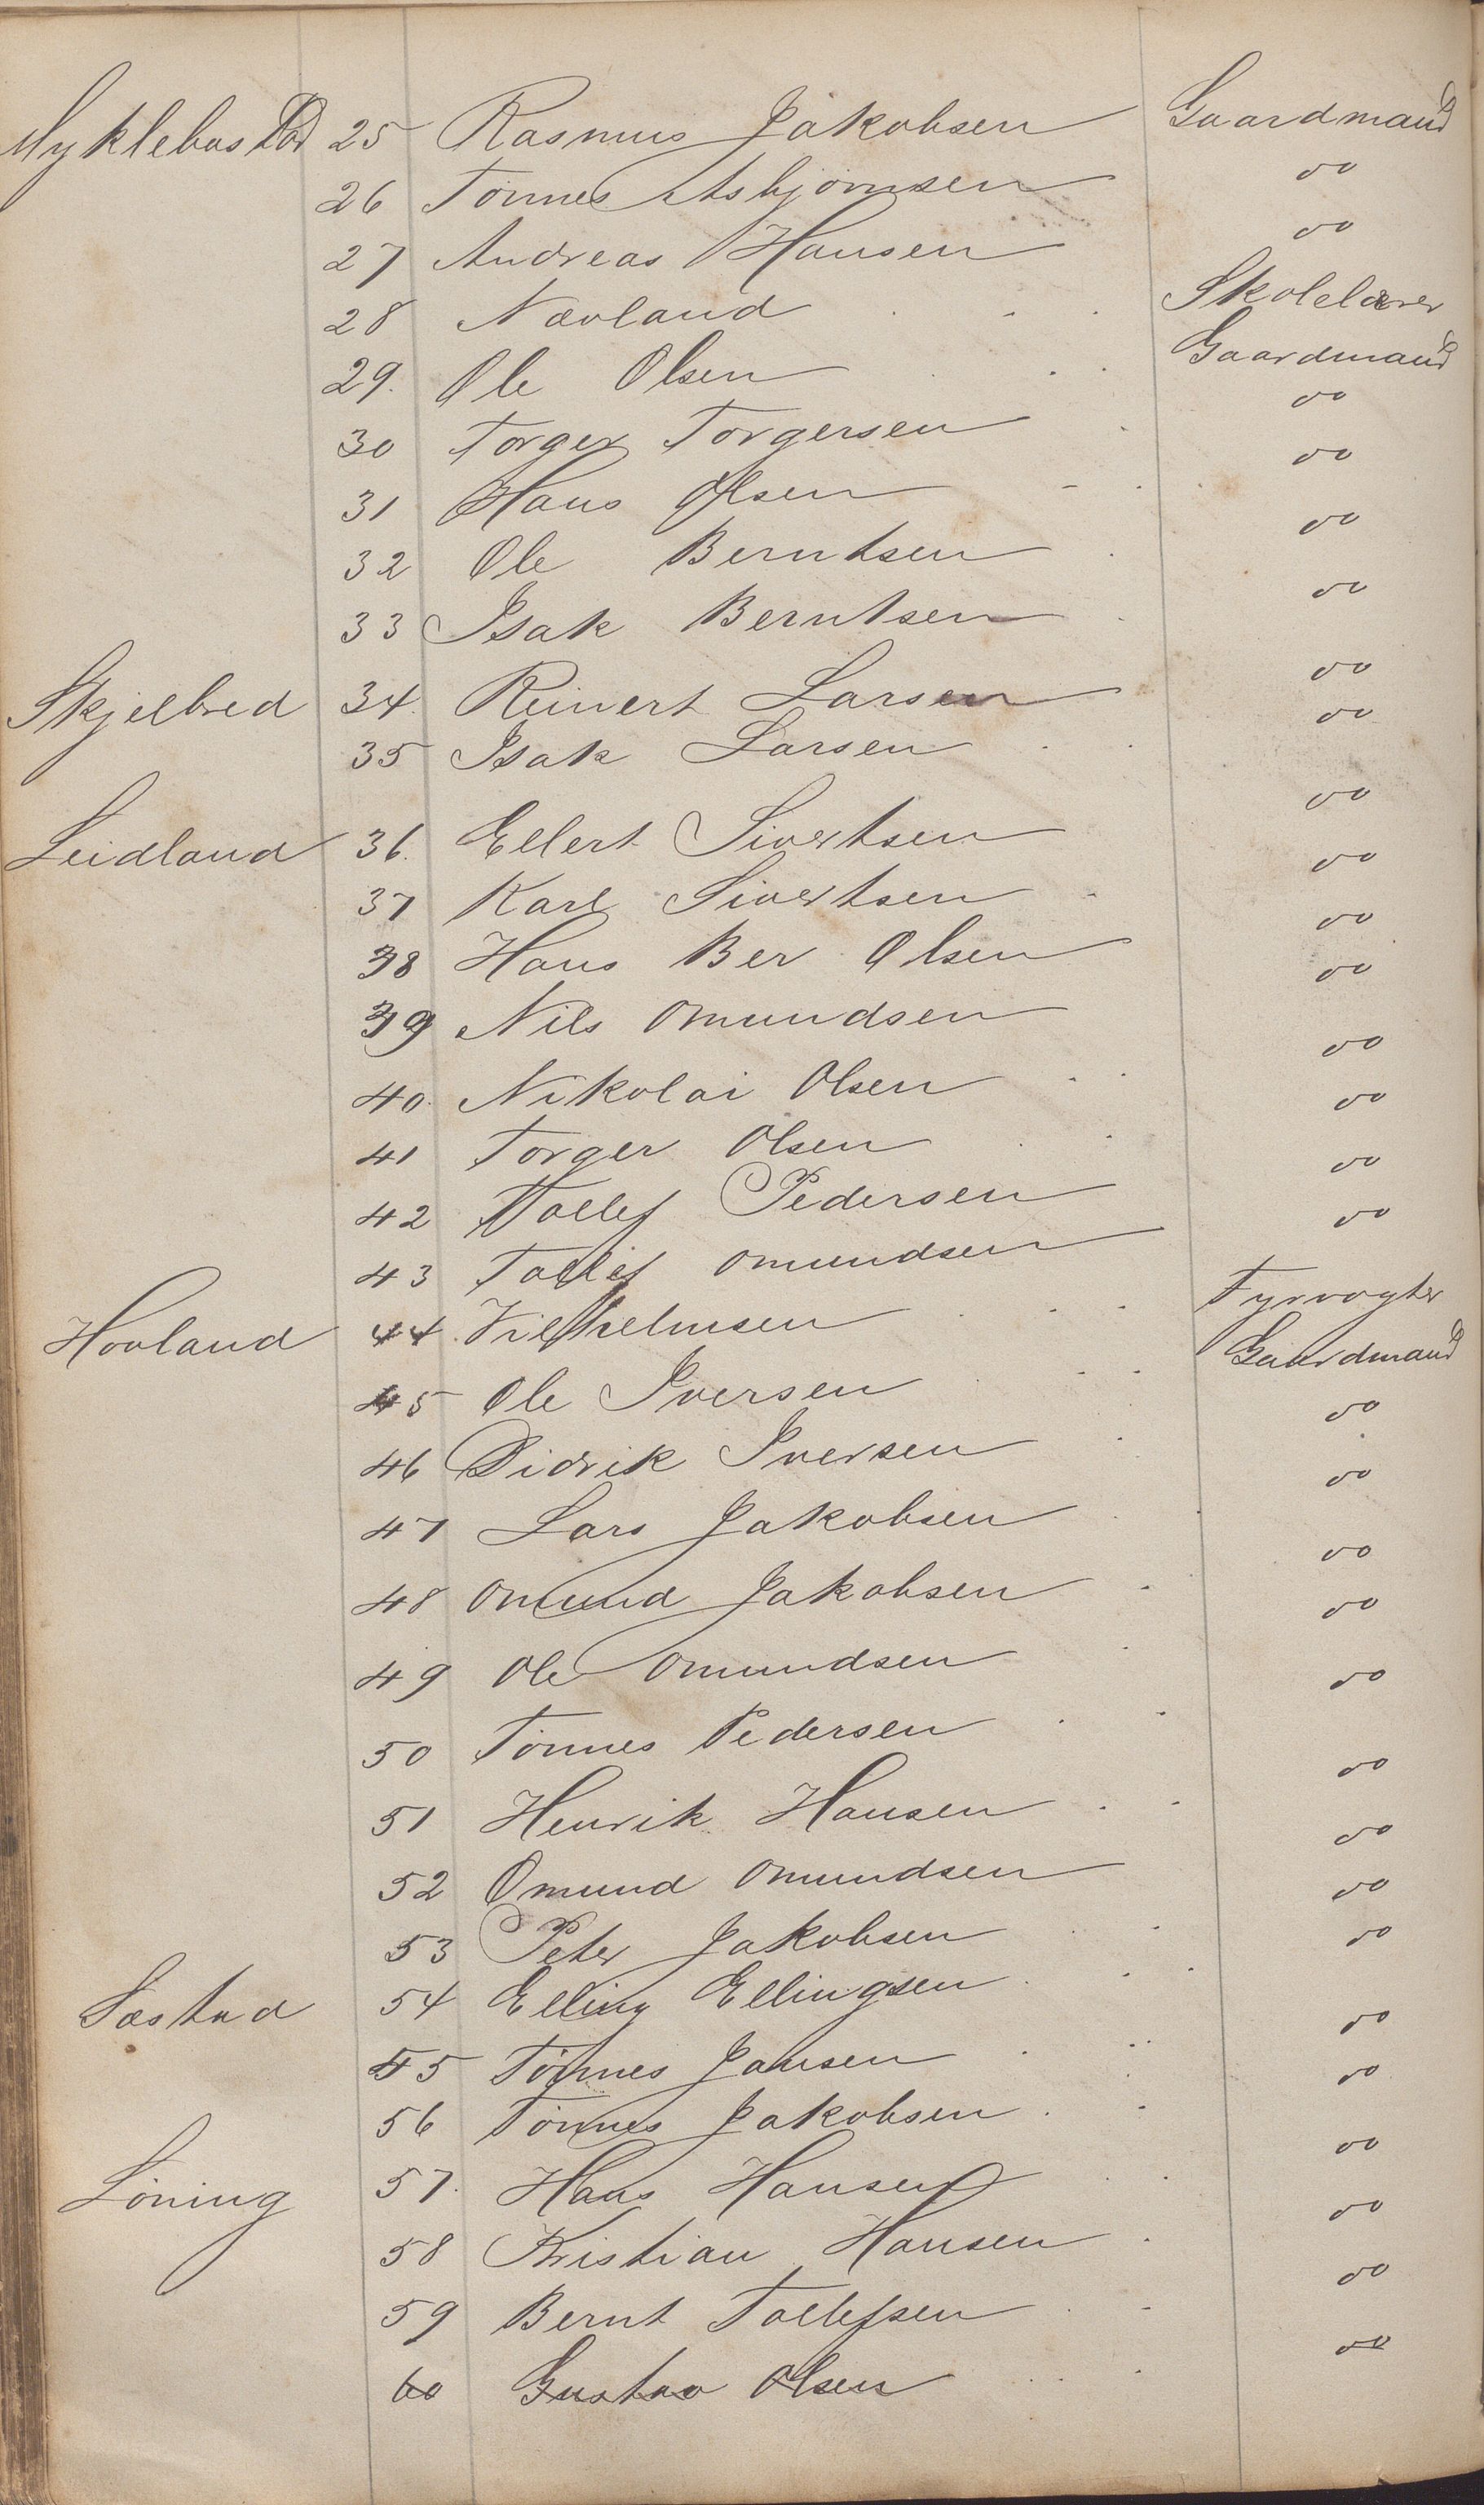 Myklebostad 25 Rasmus Jakobsen Gaardmand
26 Tønnes Asbjørnsen do
27 Andreas Hansen do
28 Nævland Skolelærer
29. Ole Olsen Gaardmand
30 Torger Torgersen do
31 Hans Olsen do
32 Ole Berntsen do
33 Isak Berntsen do
Skjelbred 34. Reinert Larsen do
35 Isak Larsen do
Leidland 36. Ellert Sivertsen do
37 Karl Sivertsen do
38 Hans Ber Olsen do
39 Nils Omundsen do
40. Nikolai Olsen do
41 Torger Olsen do
42 Tollef Pedersen do
43 Tollef Omundsen do
Hovland 44. Vilhelmsen Fyrvogter
45 Ole Iversen Gaardmand
46 Didrik Iversen do
47 Lars Jakobsen do
48 Omund Jakobsen do
49 Ole Omundsen do
50 Tønnes Pedersen do
51 Henrik Hansen do
52 Omund Omundsen do
53 Peter Jakobsen do
Sæstad 54 Elling Ellingsen do
55 Tønnes Jansen do
56 Tønnes Jakobsen do
Løning 57. Hans Hansen do
58 Kristian Hansen do
59 Bernt Tollefsen do
60 Gustav Olsen do